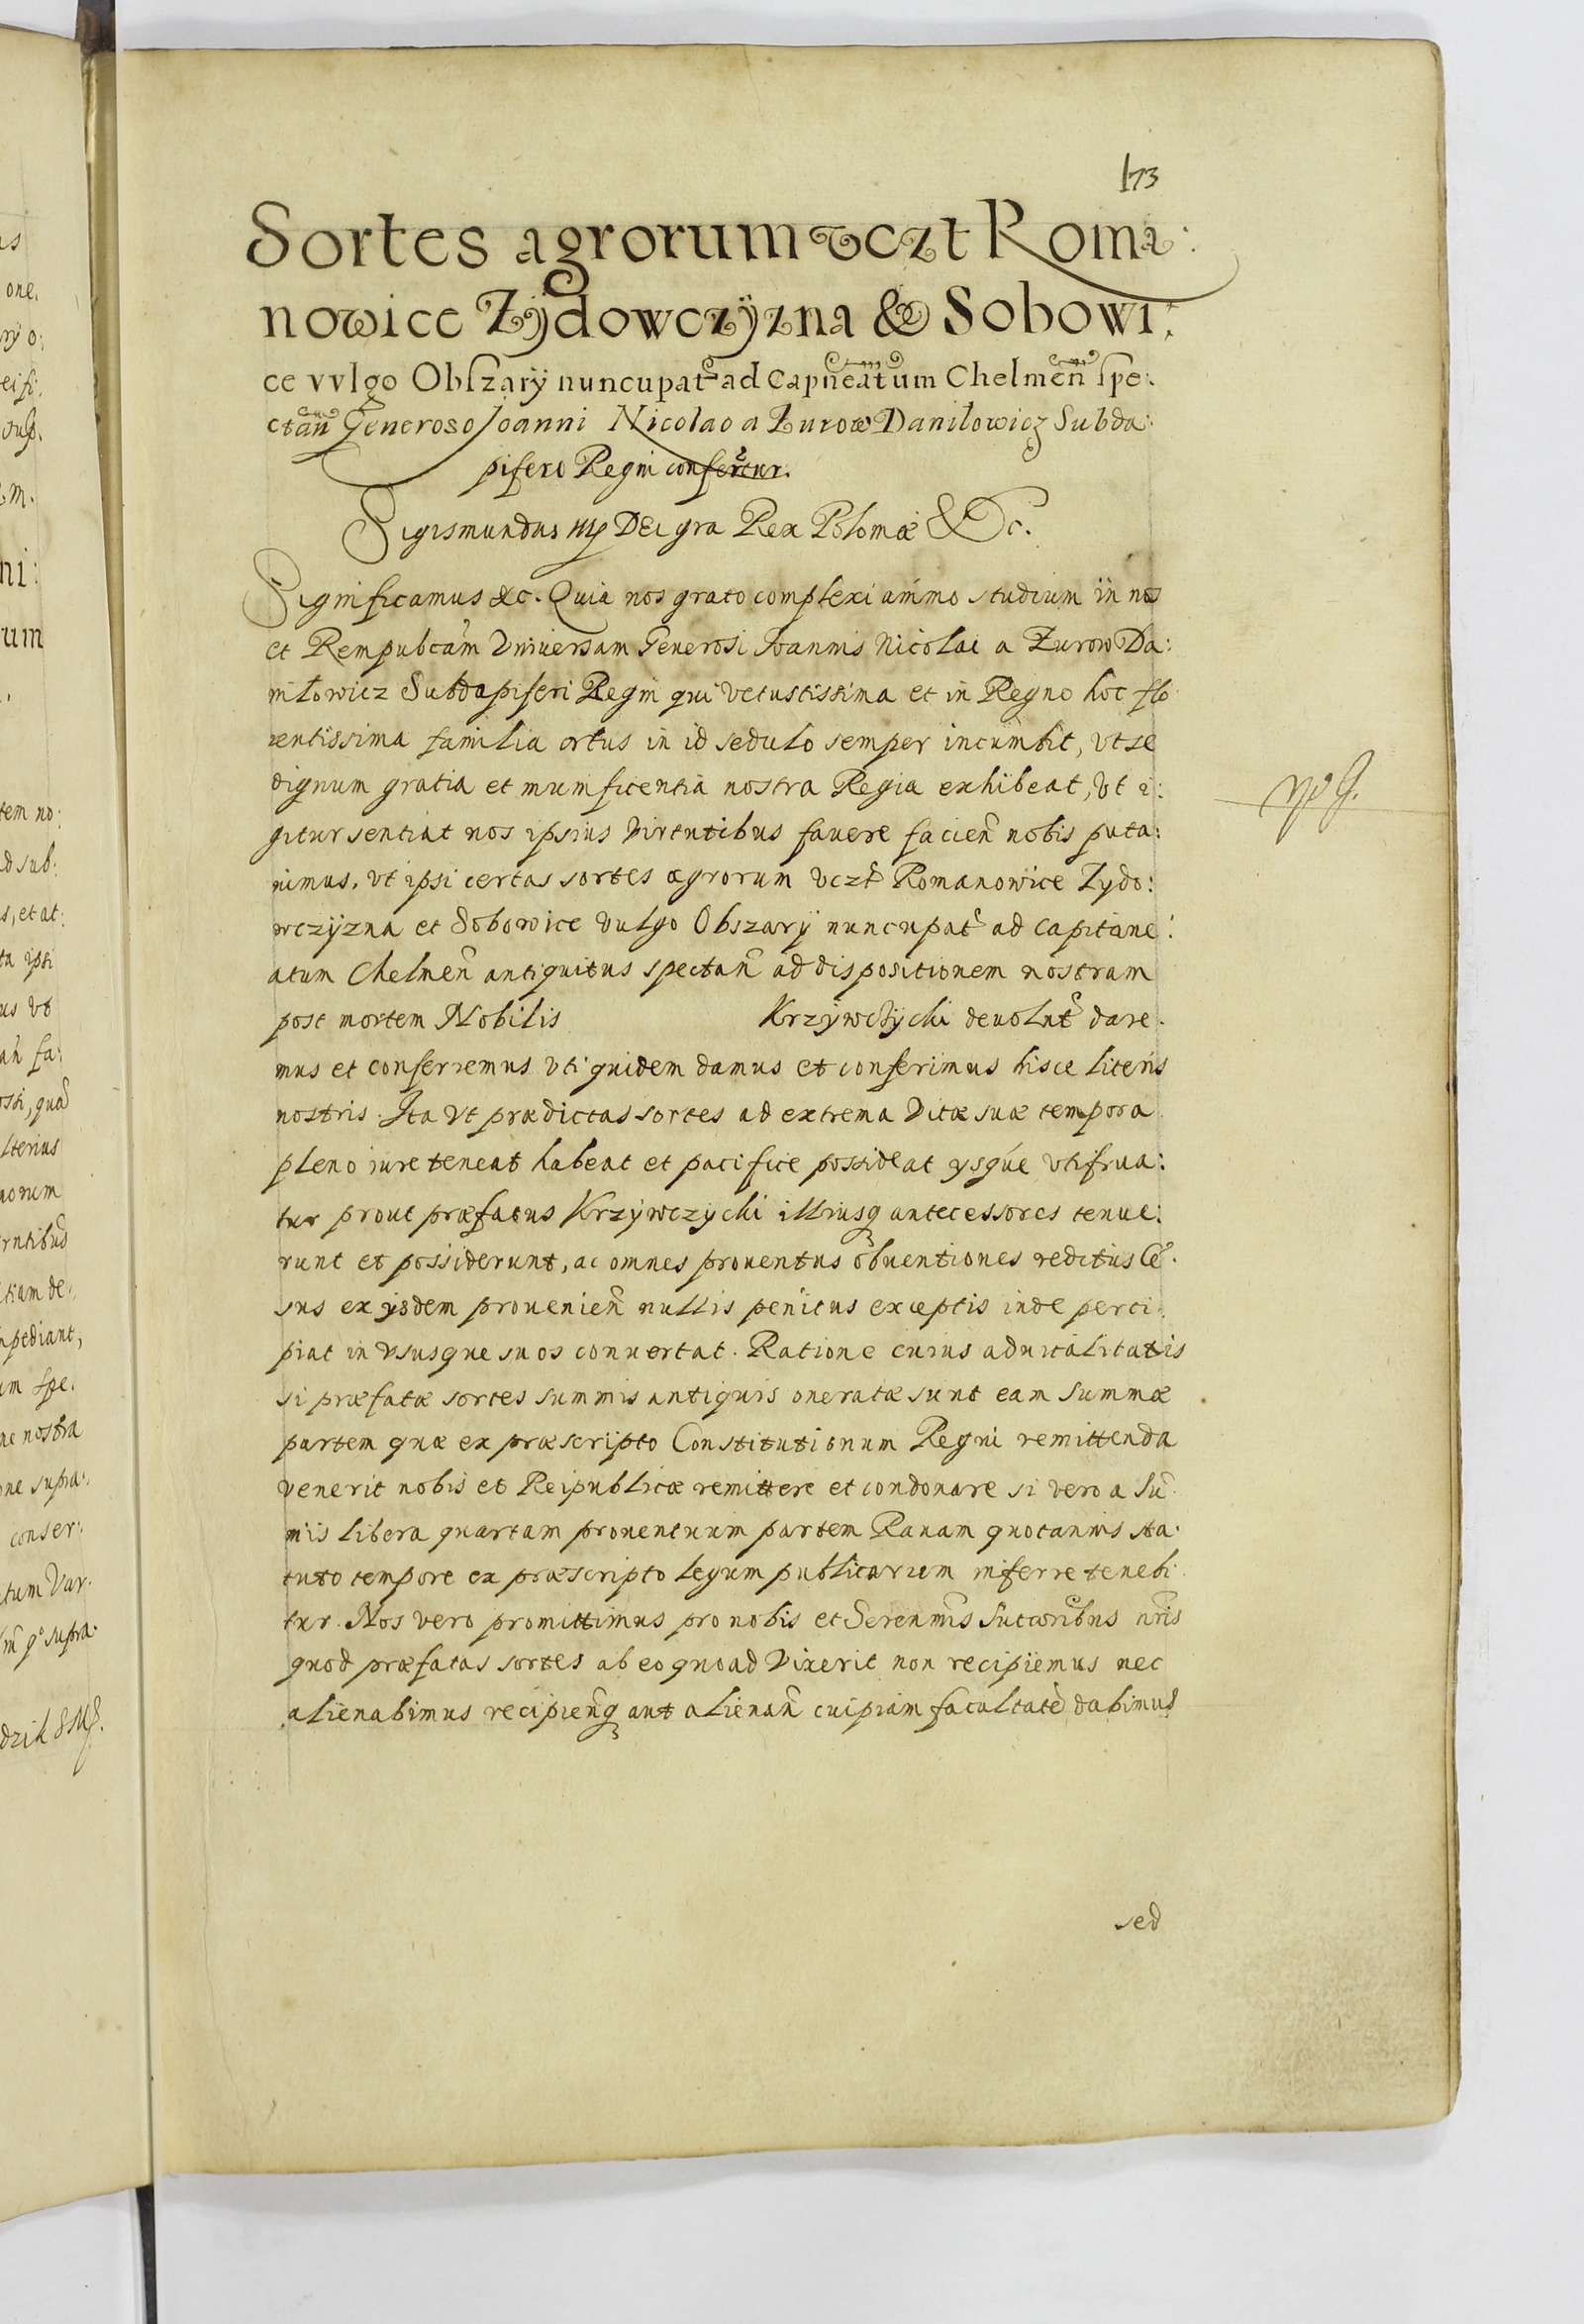 173
Sortes agrorum vczt Roma:
nowice Zÿdowczÿzna & Sobowi:
ce vvlgo Obszarÿ nuncupat ad Capneatum Chelmen̄ spe:
ctan̄ Generoso Joanni Nicolao a Żurow Daniłowicz Subda:
pifero Regni confertur.
Sigismundus IIIs DEi gra Rex Poloniæ &c.
Significamus &c. Quia nos grato complexi animo studium in nos
et Rempubcam Vniuersam Generosi Joannis Nicolai a Żurow Da:
niłowicz Subdapiferi Regni qui vetustissima et in Regno hoc flo
rentissima familia ortus in id sedulo semper incumbit, vt se
dignum gratia et munificentia nostra Regia exhibeat, vt i:
gitur sentiat nos ipsius virtutibus fauere facien̄ nobis puta:
uimus, vt ipsi certas sortes agrorum vczt Romanowice Zydo:
wczÿzna et Sobowice vulgo Obszarÿ nuncupat ad Capitane:
atum Chelmen̄ antiquitus spectan̄ ad dispositionem nostram
post mortem Nobilis Krzÿwczÿchi deuolut dare:
mus et conferremus vti quidem damus et conferimus hisce literis
nostris. Ita vt prædictas sortes ad extrema vitæ suæ tempora
pleno iure teneat habeat et pacifice possideat ysque vtifrua:
tur prout præfatus Krzÿwczychi illiusq antecessores tenue:
runt et possiderunt, ac omnes prouentus obuentiones reditus Ce͂:
sus ex ijsdem prouenien̄ nullis penitus exceptis inde perci:
piat in vsusque suos conuertat. Ratione cuius aduitalitatis
si præfatæ sortes summis antiquis oneratæ sunt eam summæ
partem quæ ex præscripto Constitutionum Regni remittenda
venerit nobis et Reipublicæ remittere et condonare si vero a Su͂
mis libera quartam prouentuum partem Rauam quotannis sta:
tuto tempore ex præscripto legum publicarum inferre tenebi
tur. Nos vero promittimus pro nobis et Serenmis Succoribus nris
quod præfatas sortes ab eo quoad vixerit non recipiemus nec
alienabimus recipien̄q aut alienan̄ cuipiam facultate͂ dabimus
sed